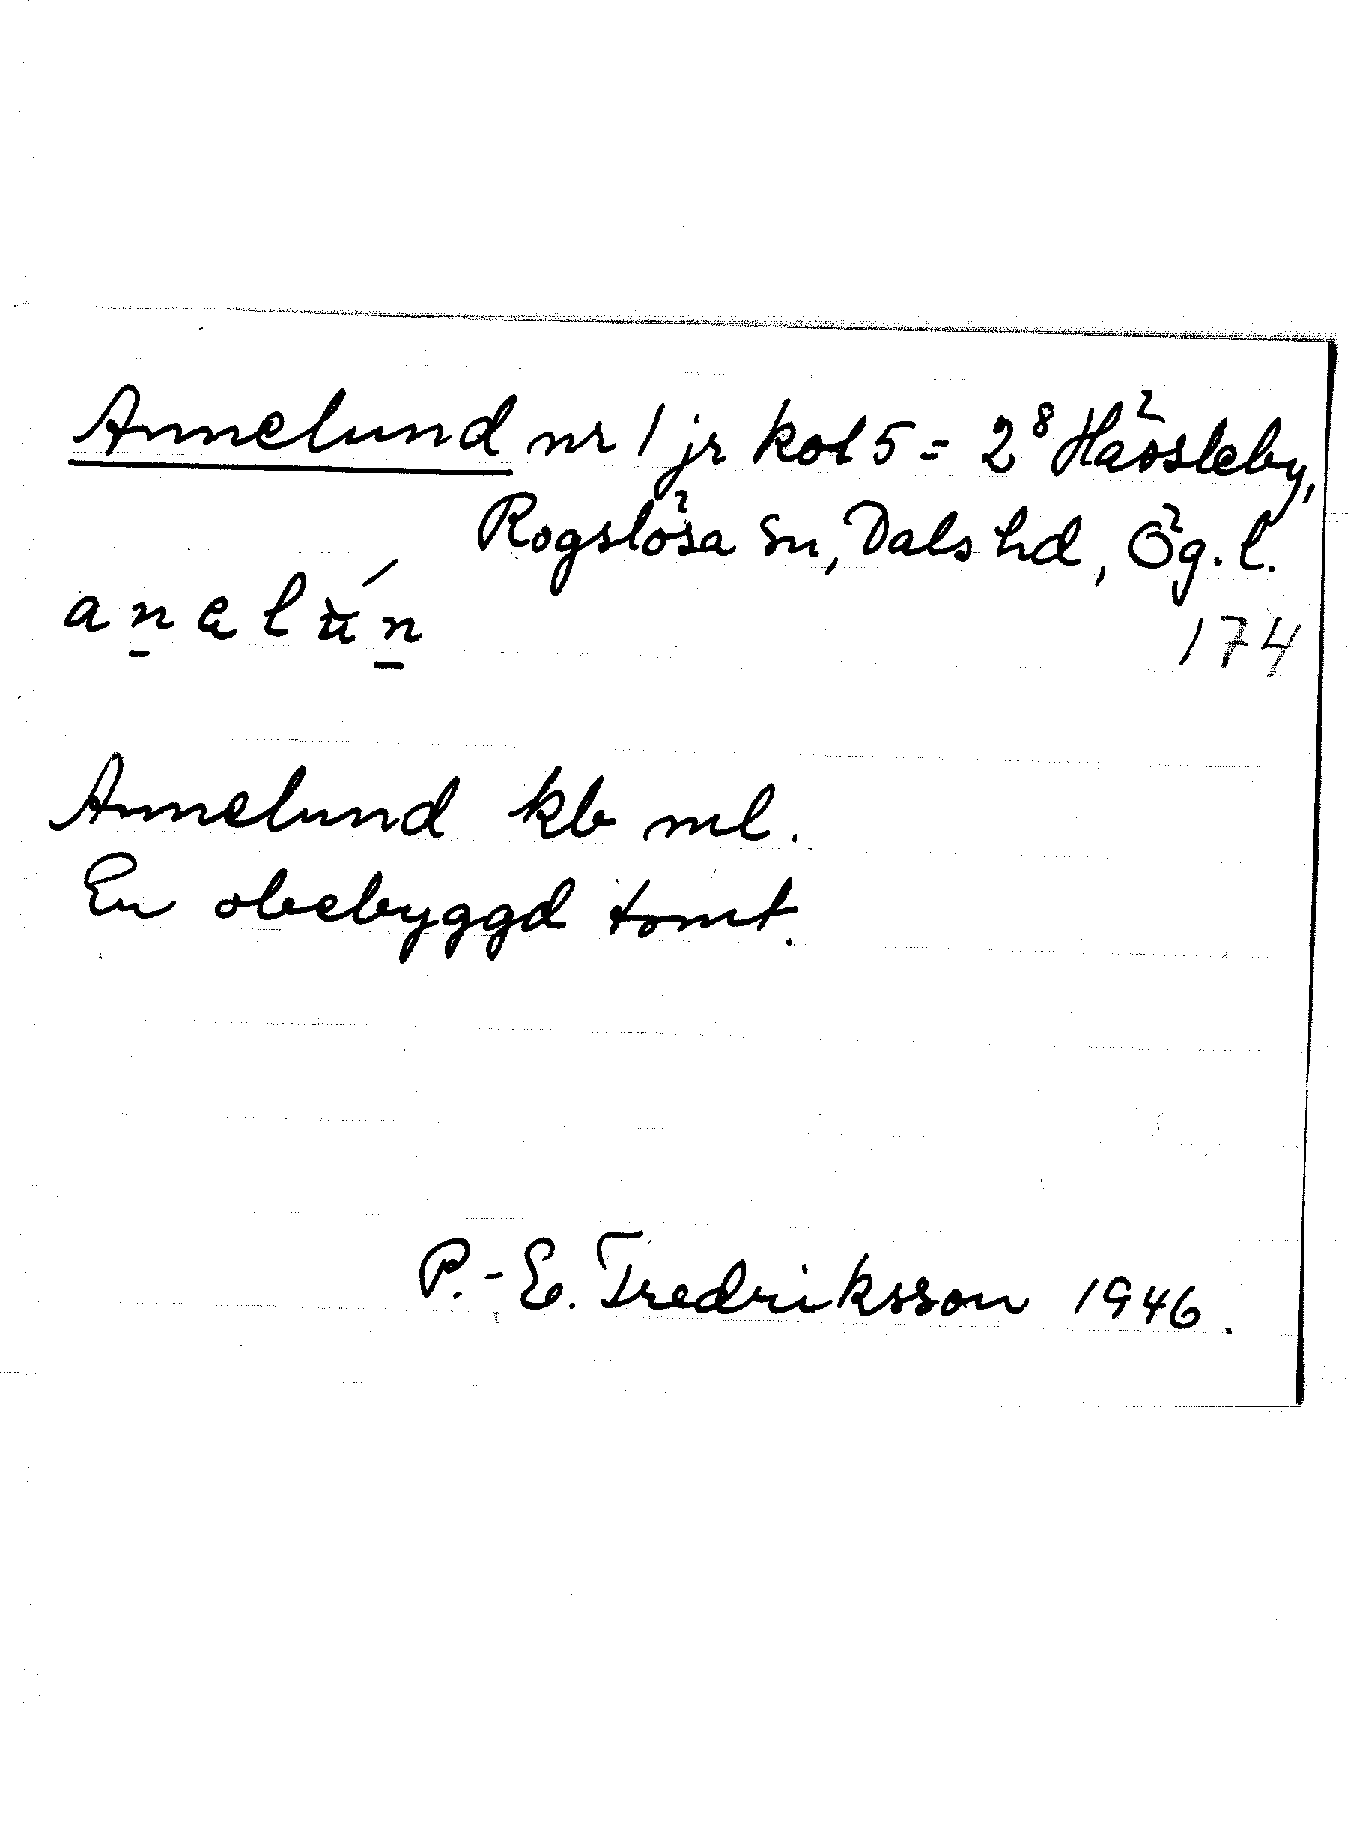 Annelund nr 1 jr kol 5 = 2⁸ Hässleby,
Rogslösa sn, Dals hd, Ög. l.
anelún
174
Annelund kb ml.
En obebyggd tomt.
P.-E. Fredriksson 1946.